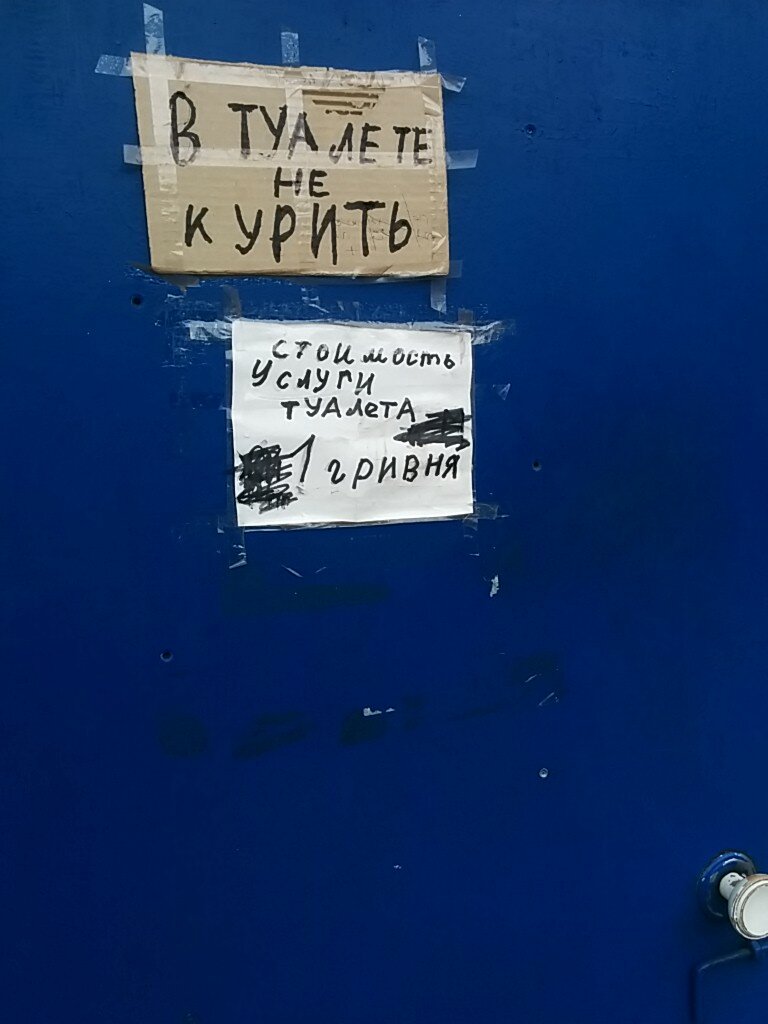 В ТУАЛЕТЕ
НЕ
КУРИТЬ
стоимость
Услуги
туАлетА
1 гривня